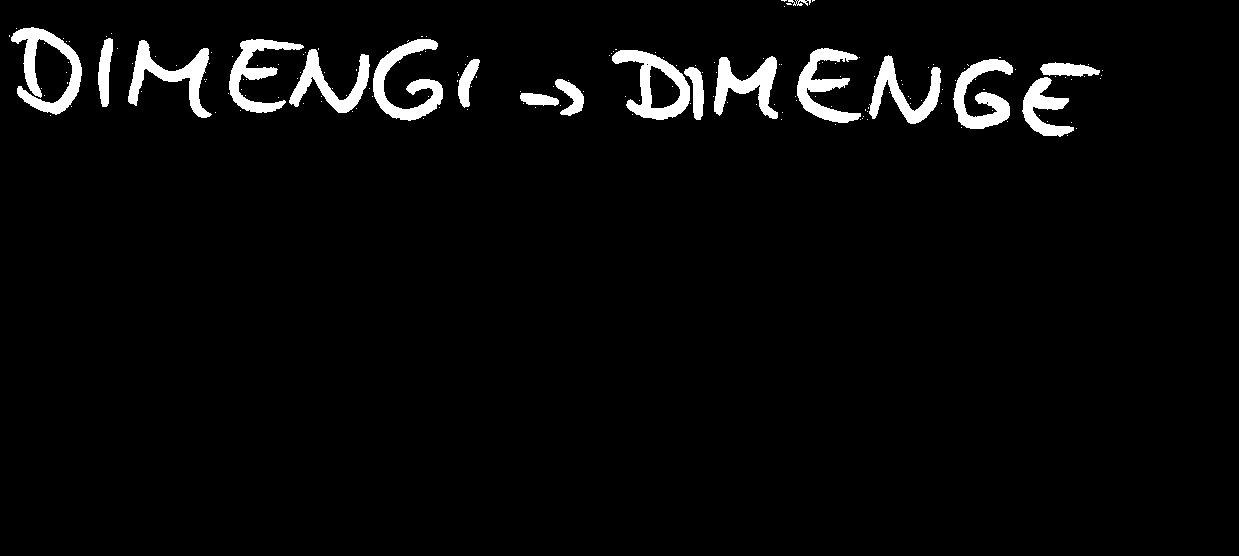 DIMENGI → DIMENGE